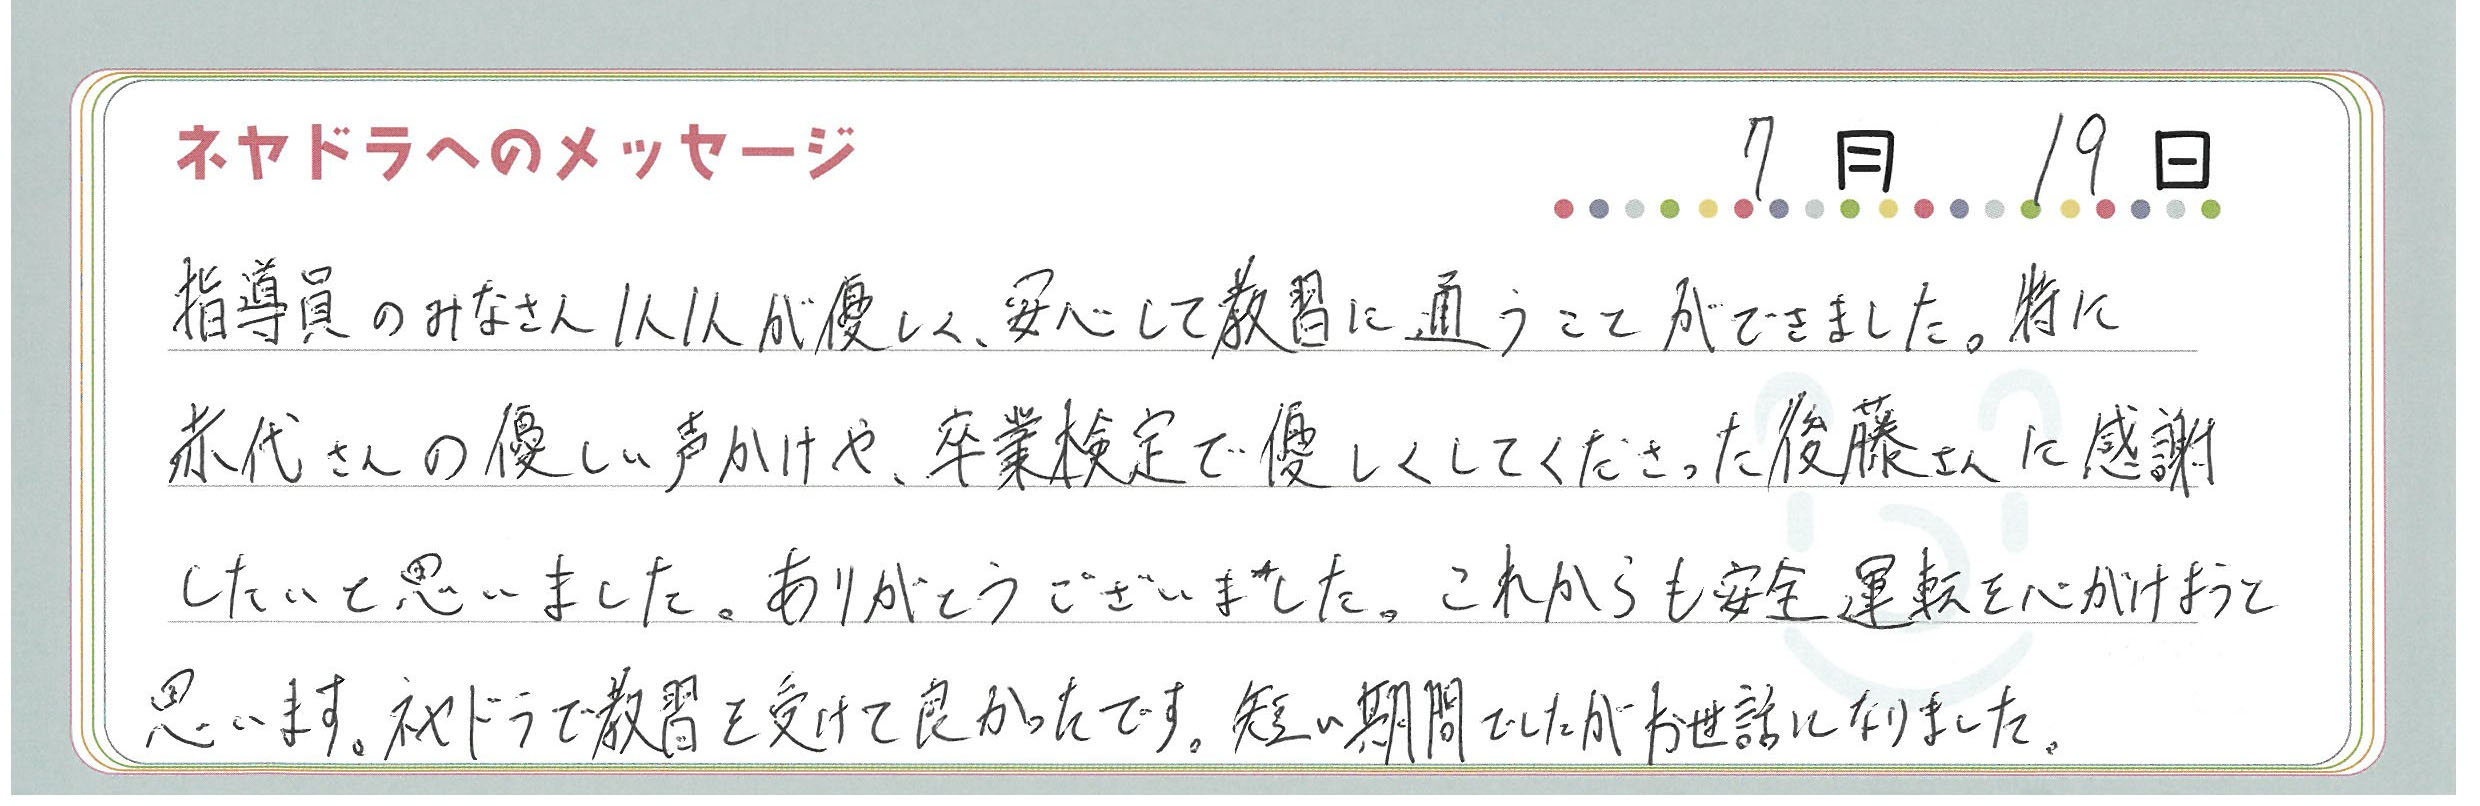 ネヤドラへのメッセージ
7月 19日
指導員のみなさん1人1人が優しく、安心して教習に通うことができました。特に
赤代さんの優しい声かけや、卒業検定で優しくしてくださった後藤さんに感謝
したいと思いました。ありがとうございました。これからも安全運転を心がけようと
思います。ネヤドラで教習を受けて良かったです。短い期間でしたがお世話になりました。